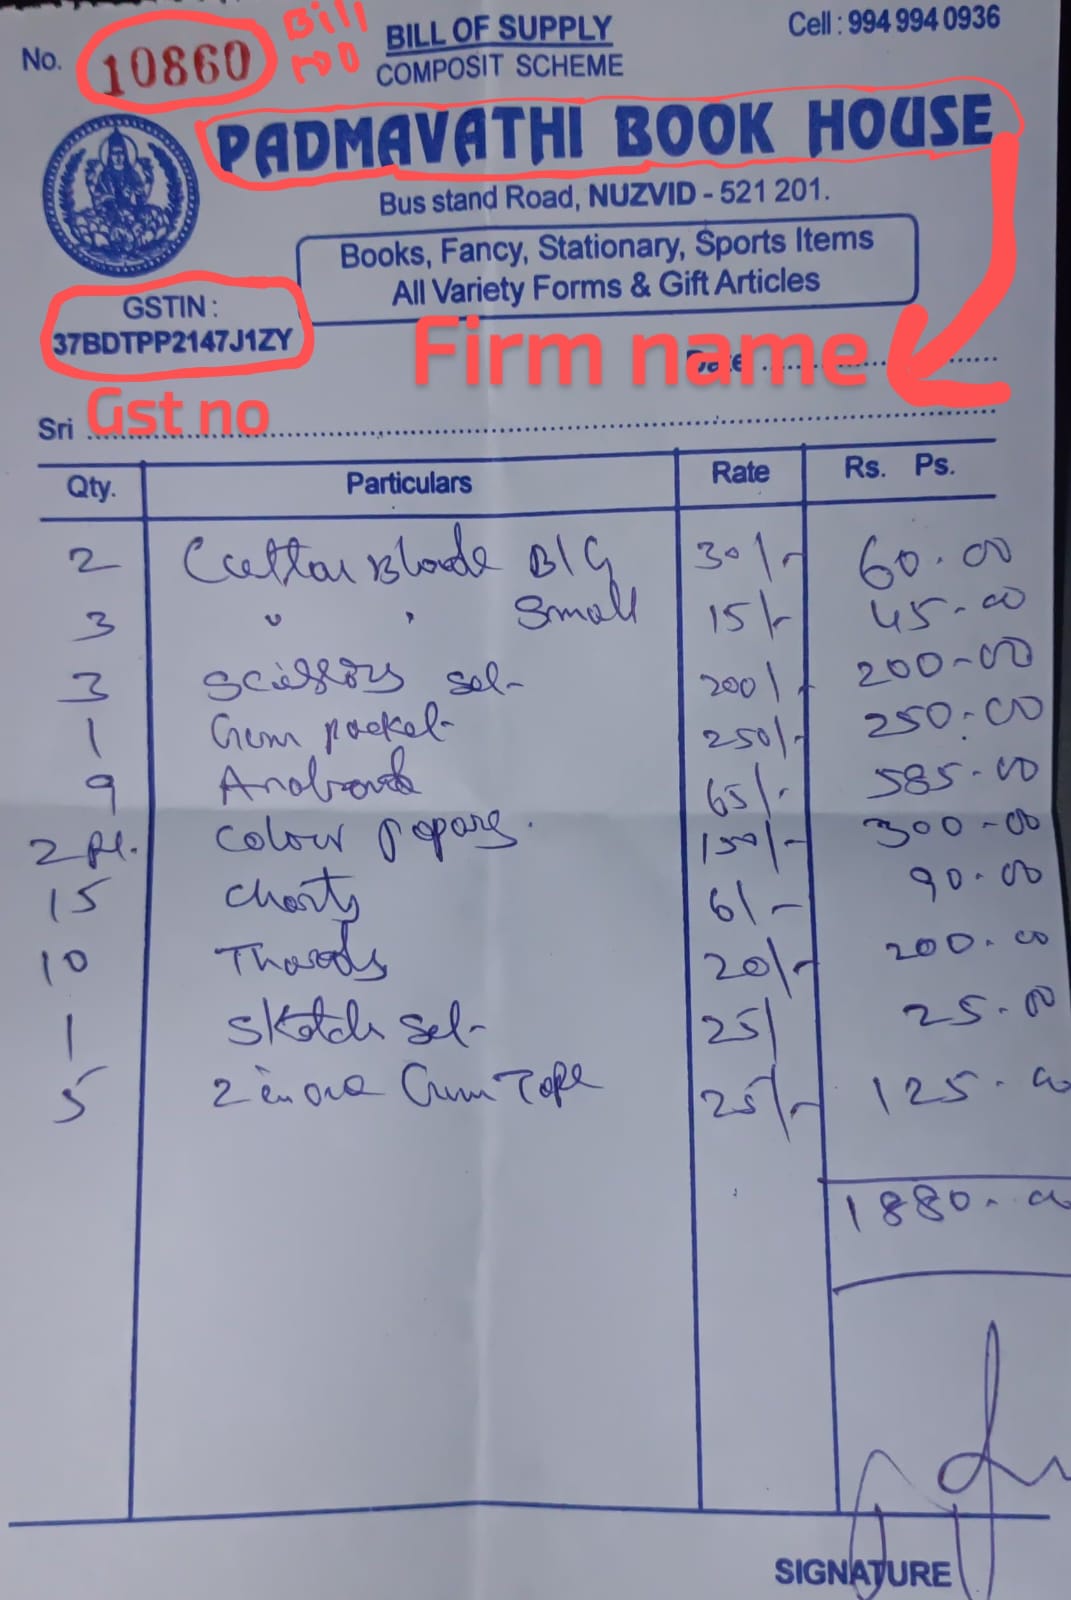 No. 10860
Bill no
BILL OF SUPPLY
COMPOSIT SCHEME
Cell : 994 994 0936
PADMAVATHI BOOK HOUSE
Bus stand Road, NUZVID - 521 201.
Books, Fancy, Stationary, Sports Items
All Variety Forms & Gift Articles
GSTIN :
37BDTPP2147J1ZY
Firm name
Date
Gst no
Sri
Qty. Particulars Rate Rs. Ps.
2 Cuttar Blade BIG 30/- 60.00
3 " " Small 15/- 45.00
3 Scissors set 200/- 200-00
1 Gum packet 250/- 250.00
9 65/- 585.00
2 pt. Colour papers 150/- 300-00
15 Charts 6/- 90.00
10 Threads 20/- 200.00
1 Sketch set 25/ 25.00
5 2 inch Gum Tape 25/- 125.00
1880.00
SIGNATURE